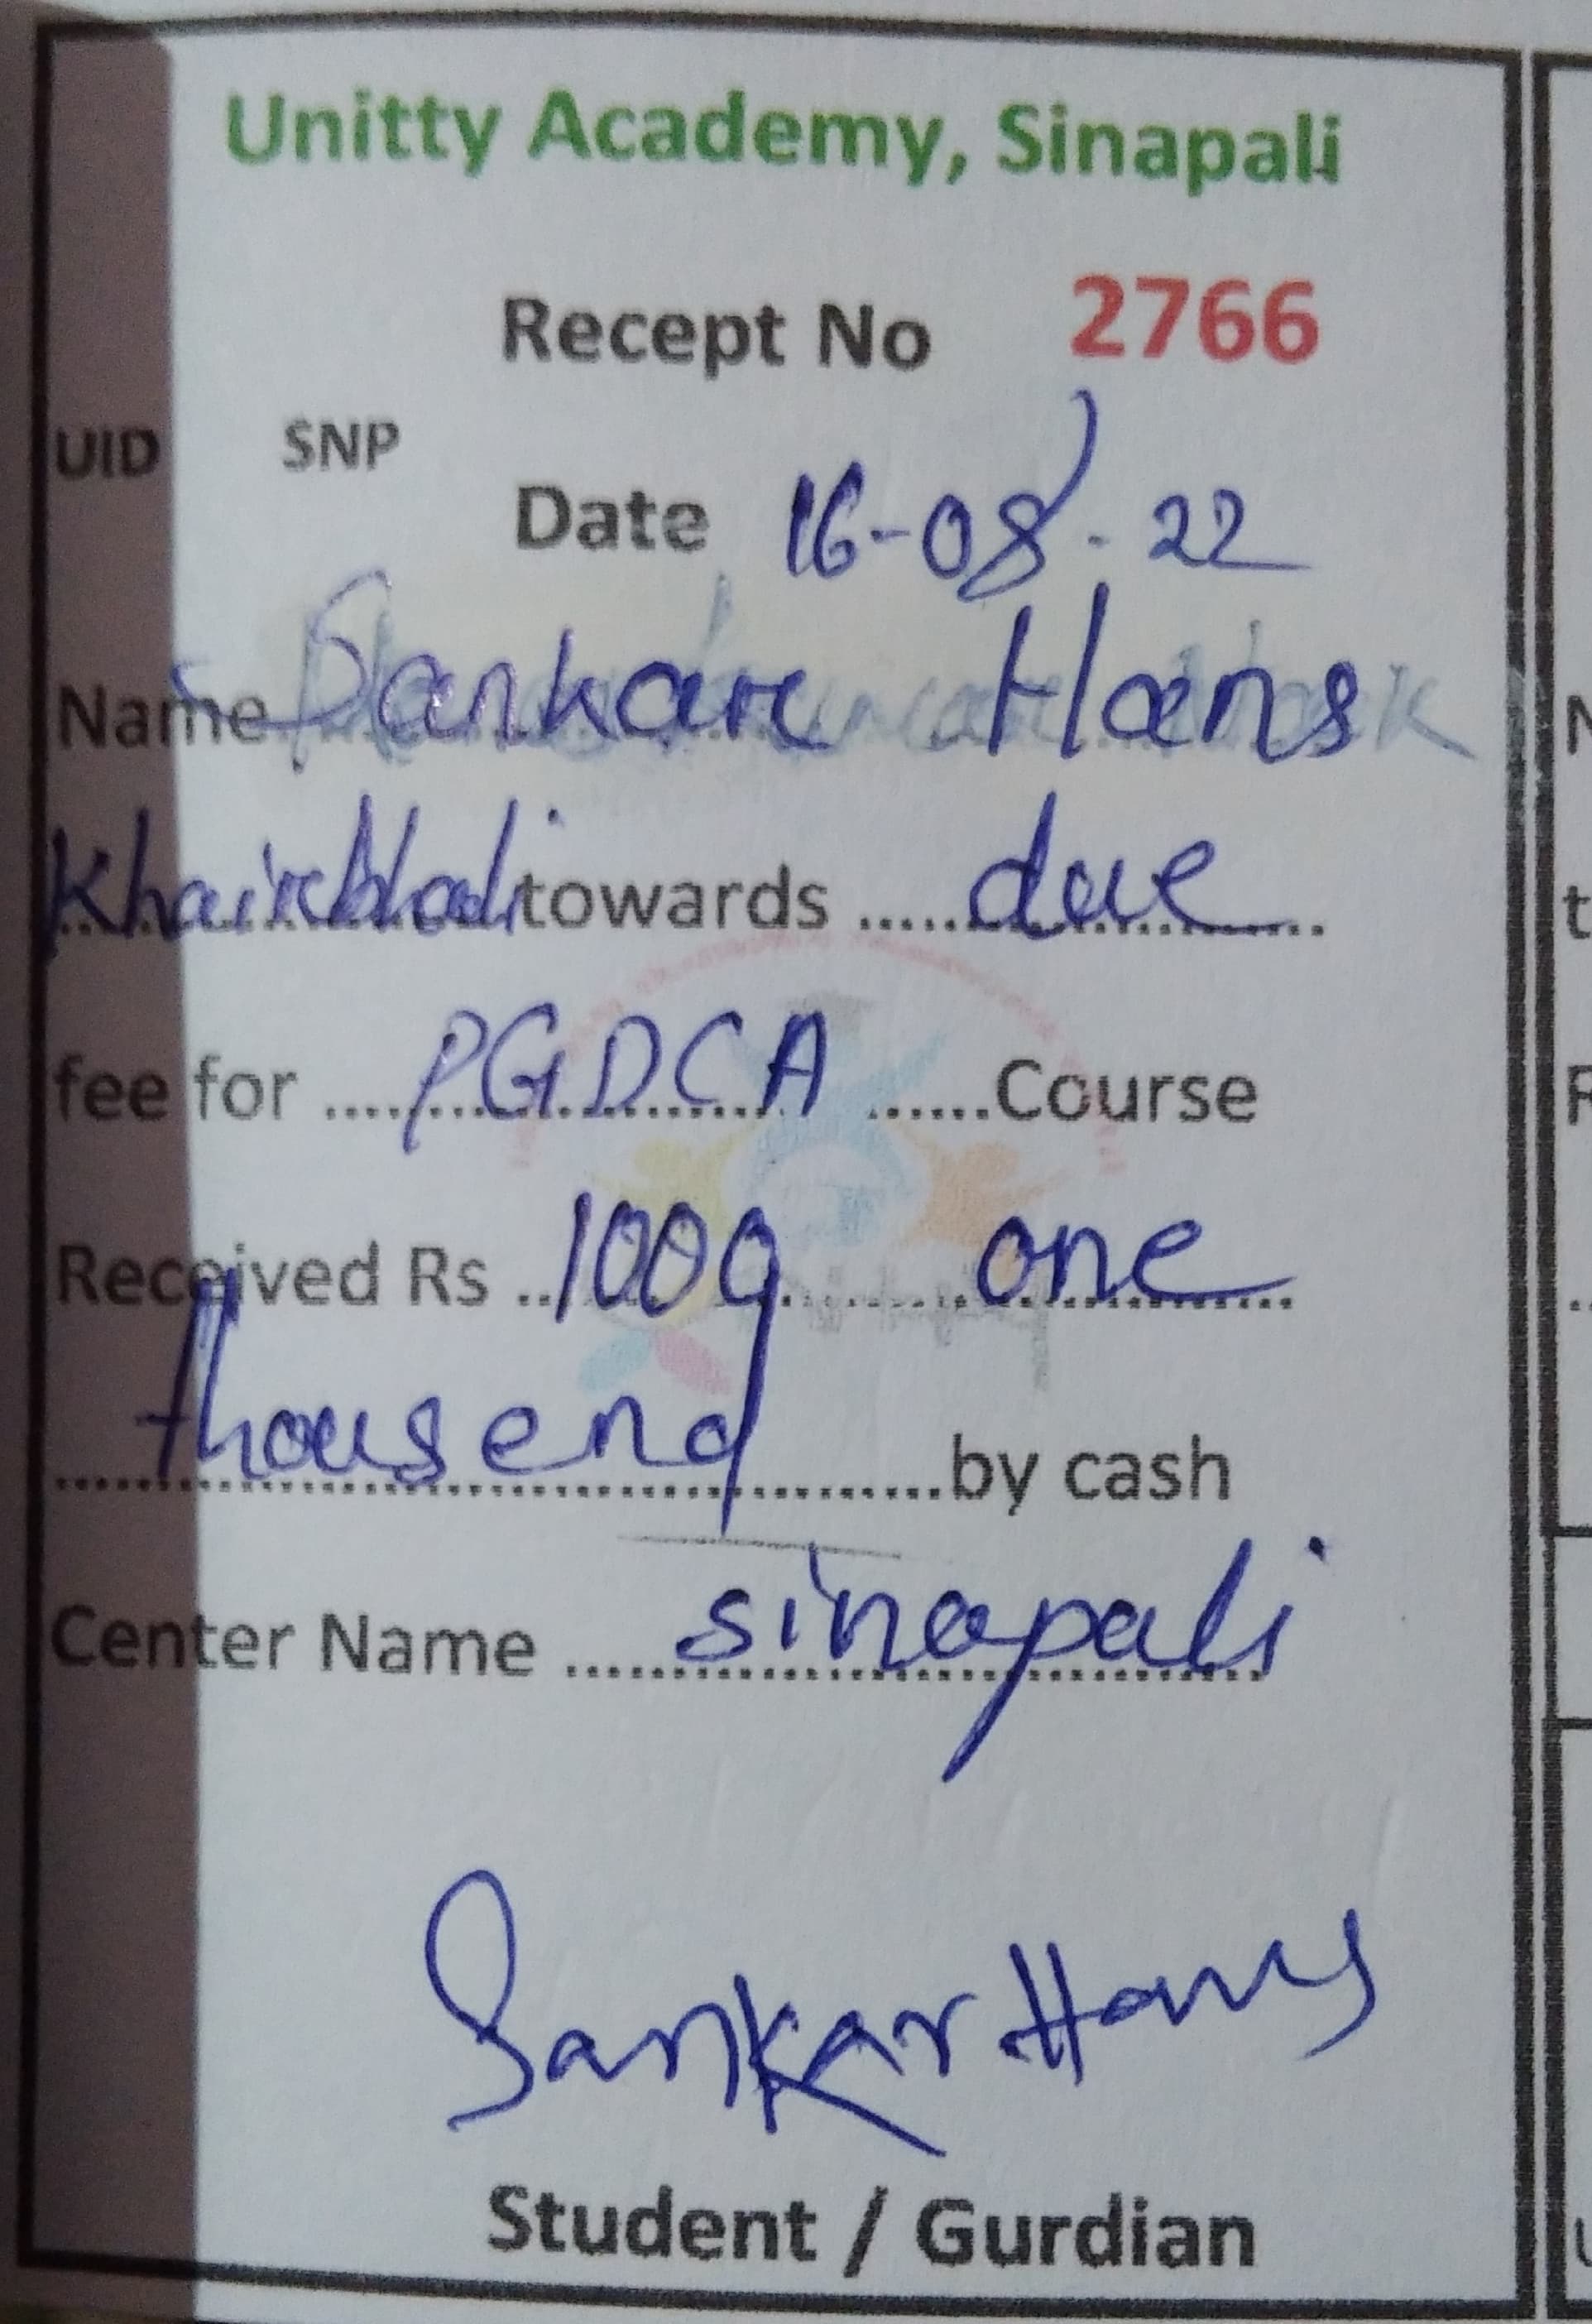 Unitty Academy, Sinapali
Recept No 2766
UID SNP
Date 16-08-22
Name Sankar Hans
towards ...... due
fee for .... PGDCA ......Course
Received Rs .. 1000 ........ one
thousend ..........by cash
Center Name ..... sinapali
Sankar Hans
Student / Gurdian